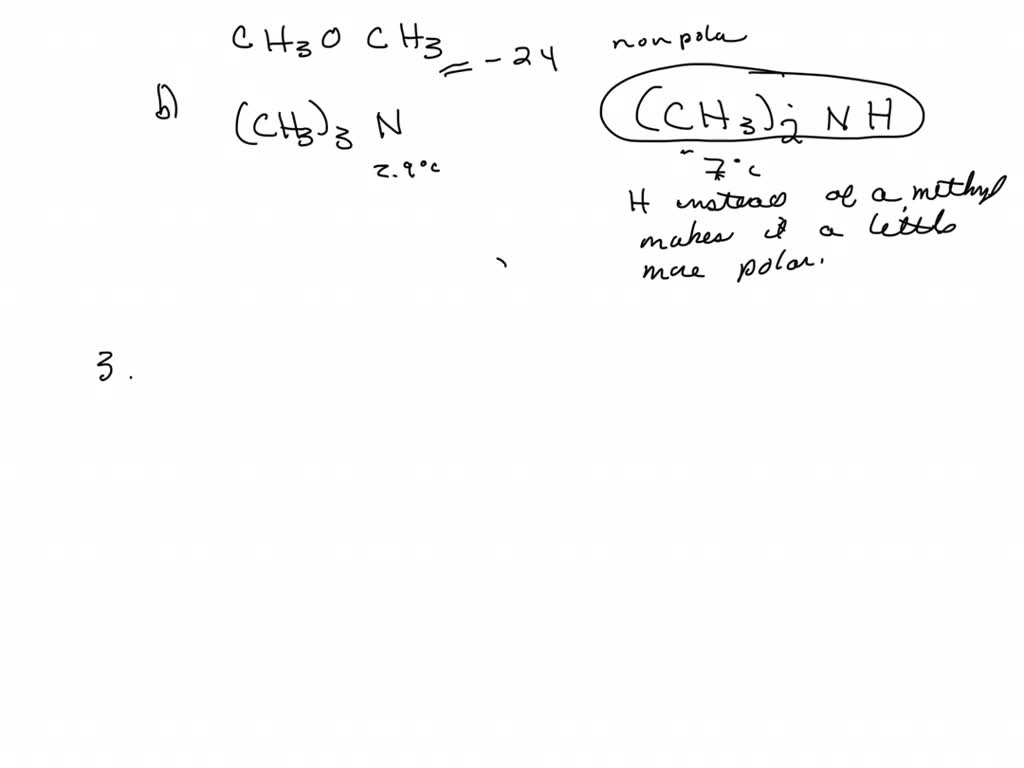 CH3O CH3 = -24 nonpola
b) (CH3)3 N (CH3)2 NH
2.9°C ~7°C
H instead of a methyl
makes it a little
more polar.
3.